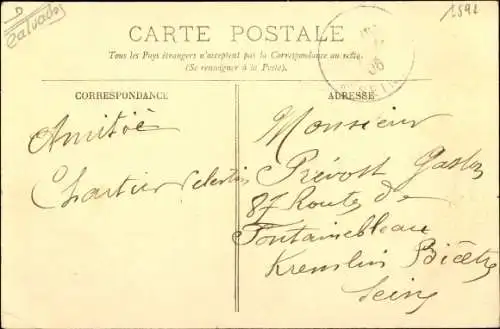 D
Calvados
1592
CARTE POSTALE
Tous les Pays étrangers n'acceptent pas la Correspondance au recto.
(Se renseigner à la Poste).
06
CORRESPONDANCE
ADRESSE
Amitié
Chartier Celestin
Monsieur
Prévost Gaston
87 Routes de
Fontainebleau
Kremlin Bicêtre
Seine